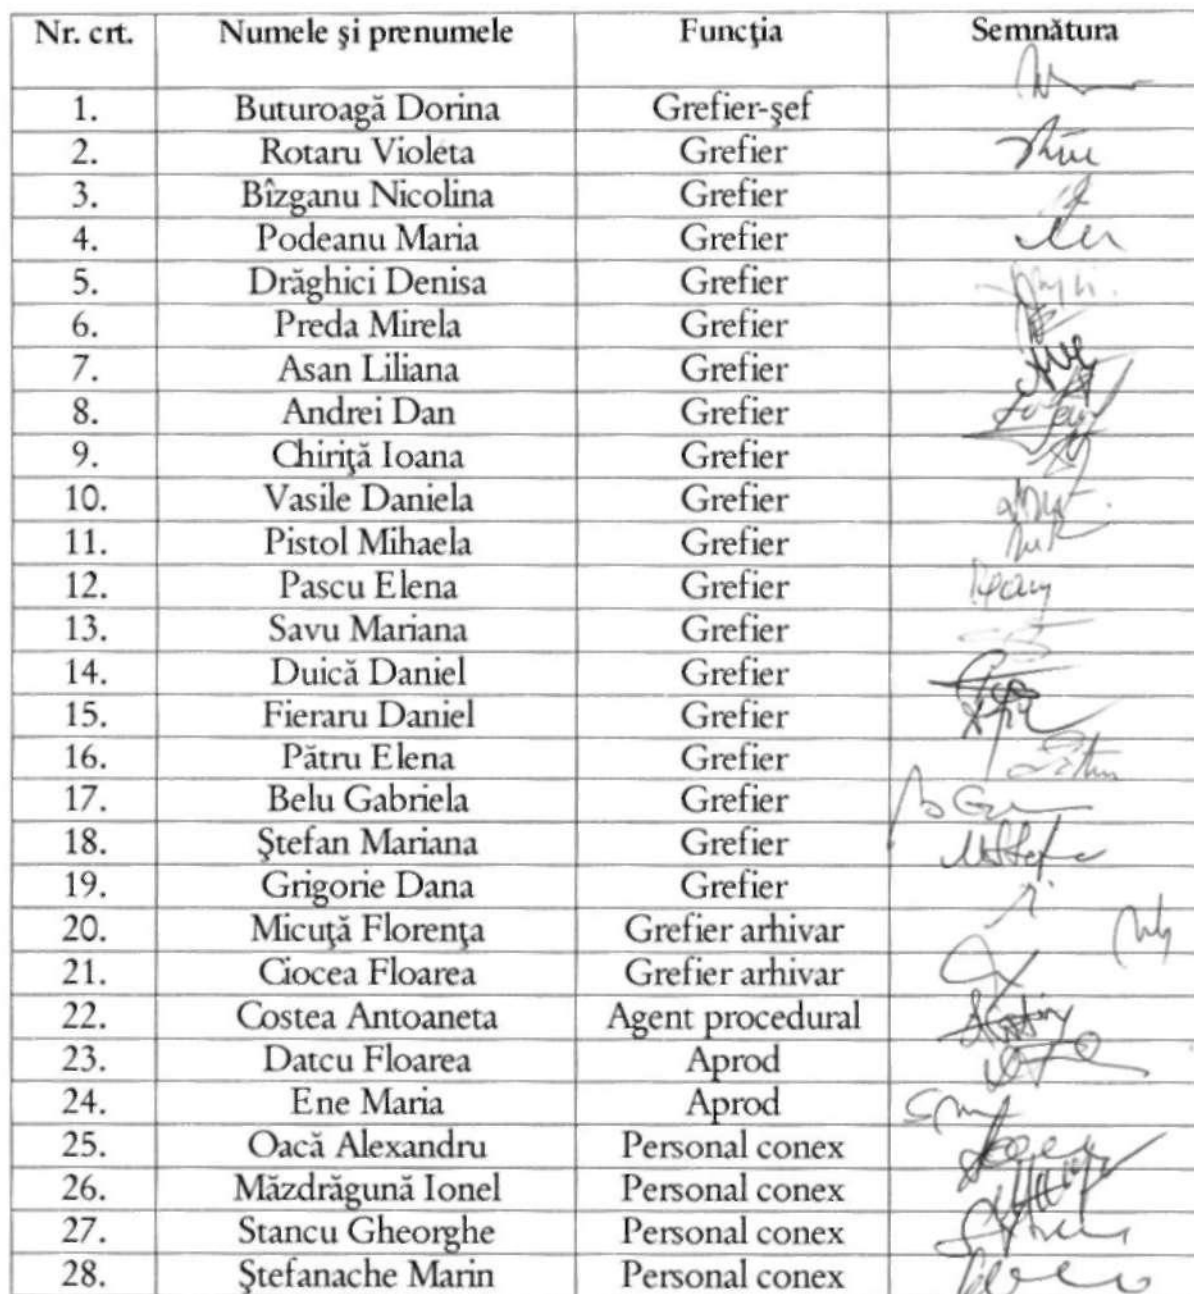 Nr. crt. Numele şi prenumele Funcţia Semnătura
1. Buturoagă Dorina Grefier-şef
2. Rotaru Violeta Grefier
3. Bîzganu Nicolina Grefier
4. Podeanu Maria Grefier
5. Drăghici Denisa Grefier
6. Preda Mirela Grefier
7. Asan Liliana Grefier
8. Andrei Dan Grefier
9. Chiriţă Ioana Grefier
10. Vasile Daniela Grefier
11. Pistol Mihaela Grefier
12. Pascu Elena Grefier
13. Savu Mariana Grefier
14. Duică Daniel Grefier
15. Fieraru Daniel Grefier
16. Pătru Elena Grefier
17. Belu Gabriela Grefier
18. Ştefan Mariana Grefier
19. Grigorie Dana Grefier
20. Micuţă Florenţa Grefier arhivar
21. Ciocea Floarea Grefier arhivar
22. Costea Antoaneta Agent procedural
23. Datcu Floarea Aprod
24. Ene Maria Aprod
25. Oacă Alexandru Personal conex
26. Măzdrăgună Ionel Personal conex
27. Stancu Gheorghe Personal conex
28. Ştefanache Marin Personal conex